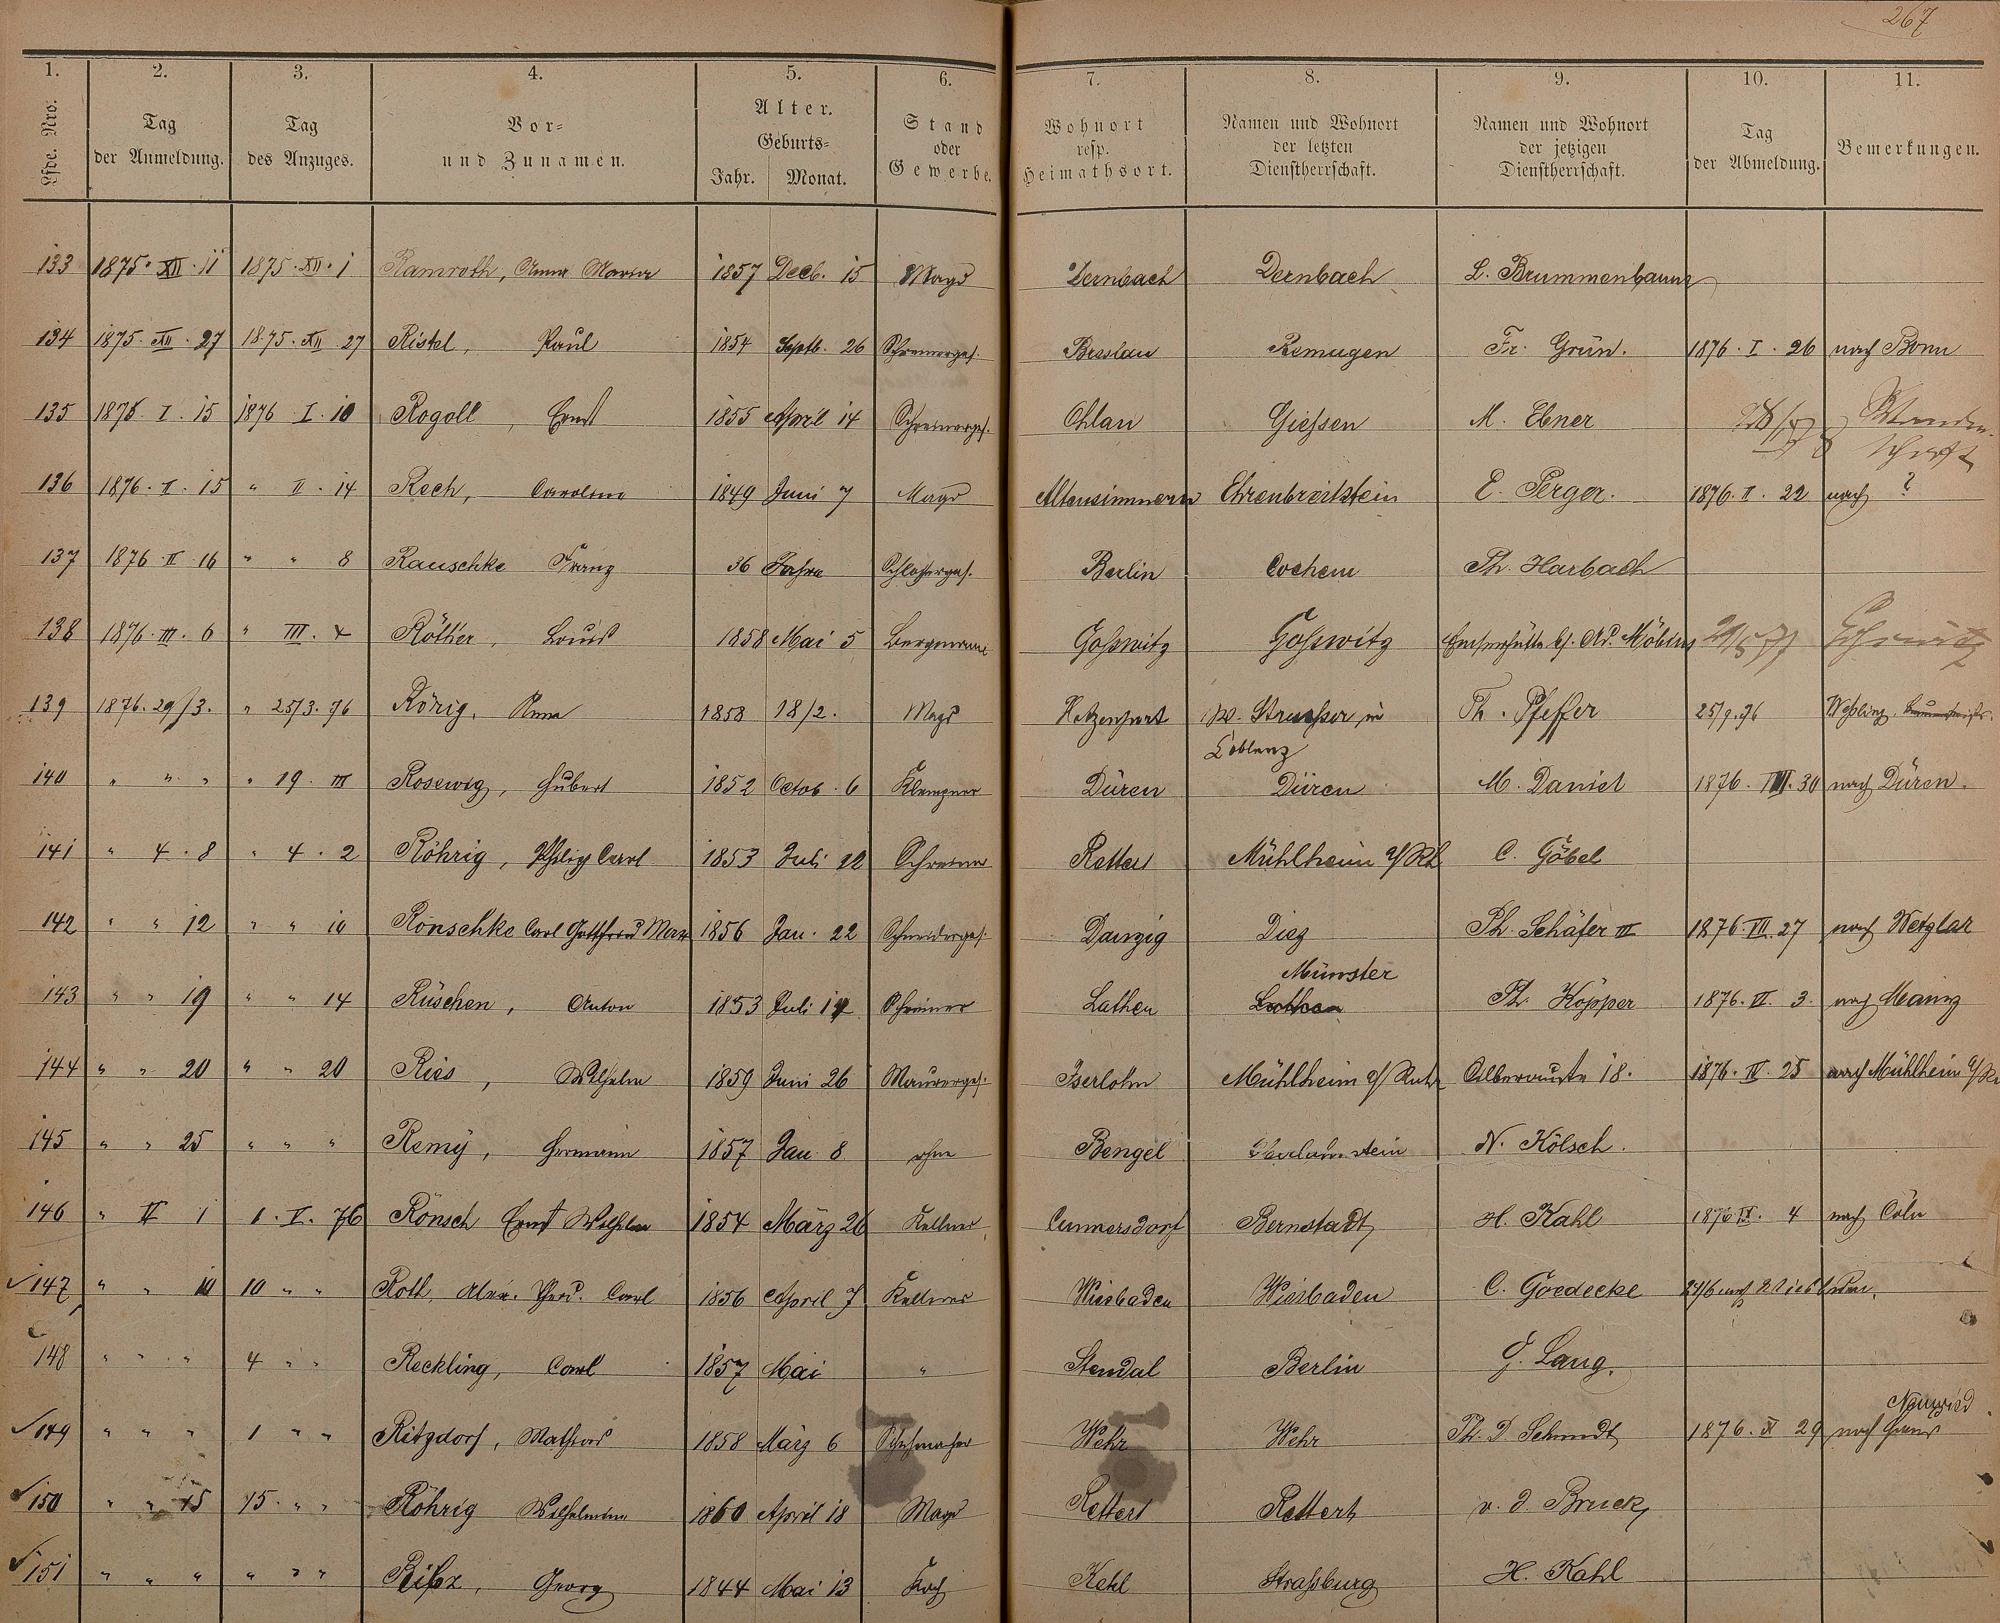 267
1. 2. 3. 4. 5. 6. 7. 8. 9. 10. 11.
Lfde. Nro. Tag der Anmeldung. Tag des Anzuges. Vor= und Zunamen. Alter. Geburts= Jahr. Monat. Stand oder Gewerbe. Wohnort resp. Heimathsort. Namen und Wohnort der letzten Dienstherrschaft. Namen und Wohnort der jetzigen Dienstherrschaft. Tag der Abmeldung. Bemerkungen.
133 1875. XII. 11 1875. XII. 1 Ramroth, Anna Maria 1857 Decb. 15 Magd Dernbach Dernbach L. Brummenbaum
134 1875. XII. 27 1875. XII. 27 Ristel, Paul 1854 Septb. 26 Schreinerges. Breslau Remagen Fr. Grün. 1876. I. 26 nach Bonn
135 1876. I. 15 1876 I. 10 Rogoll, Ernst 1855 April 14 Schreinerges. Ohlau Giessen M. Ebner
136 1876. II. 15 " II. 14 Rech, Caroline 1849 Juni 7 Magd Altensimmern Ehrenbreitstein E. Perger. 1876. II. 22 nach ?
137 1876 II. 16 " " 8 Rauschke Franz 36 Jahre Schlosserges. Berlin Cochem Ph. Harbach
138 1876. III. 6 " III. 4 Röther, Louis 1858 Mai 5 Bergmann Gosswitz Gosswitz Emserhütte b. Ad. Möbius
139 1876. 29/3. " 25/3. 76 Rörig, Anna 1858 18/2. Magd Hatzenport W. Strasser, in Coblenz Th. Pfeffer 25/9. 76 Wessling.
140 " " " " 19. III Rosewig, Hubert 1852 Octob. 6 Klempner Düren Düren M. Daniel 1876. III. 30 nach Düren.
141 " 4. 8 " 4. 2 Röhrig, Philip Carl 1853 Juli 22 Schreiner Rettert Mühlheim a/Rh C. Göbel
142 " " 12 " " 10 Rönschke Carl Gottfried Max 1856 Jan. 22 Schneiderges. Danzig Diez Ph. Schäfer III 1876. VII. 27 nach Wetzlar
143 " " 19 " " 14 Rüschen, Anton 1853 Juli 14 Schreiner Lathen Münster Lathen Ph. Köpper 1876. VI. 3. nach Mainz
144 " " 20 " " 20 Ries, Wilhelm 1859 Juni 26 Maurerges. Iserlohn Mühlheim a/Ruhr 18. 1876. IV. 25 nach Mühlheim a/R
145 " " 25 " " " Remy, Hermann 1857 Jan. 8 ohne Bengel Oberlahnstein N. Kölsch.
146 " V 1 1. V. 76 Rönsch Ernst Wilhelm 1854 März 26 Kellner Cunnersdorf Bernstadt H. Kahl 1876 4 nach Cöln
147 " " 10 10 " " Roll, Alex. Ferd. Carl 1856 April 7 Kellner Wiesbaden Wiesbaden C. Goedecke 24/6 nach Wiesbaden.
148 " " " 4 " " Reckling, Carl 1857 Mai " Stendal Berlin G. Lang.
149 " " " 1 " " Ritzdorf, Mathias 1858 März 6 Schuhmacher Wehr Wehr Ph. D. Schmidt 1876. X 29 nach Neuwied
150 " " 15 15 " " Röhrig Wilhelmine 1860 April 18 Magd Rettert Rettert v. d. Bruck
151 " " " " " " Georg 1844 Mai 13 Koch Kehl Strassburg H. Kahl